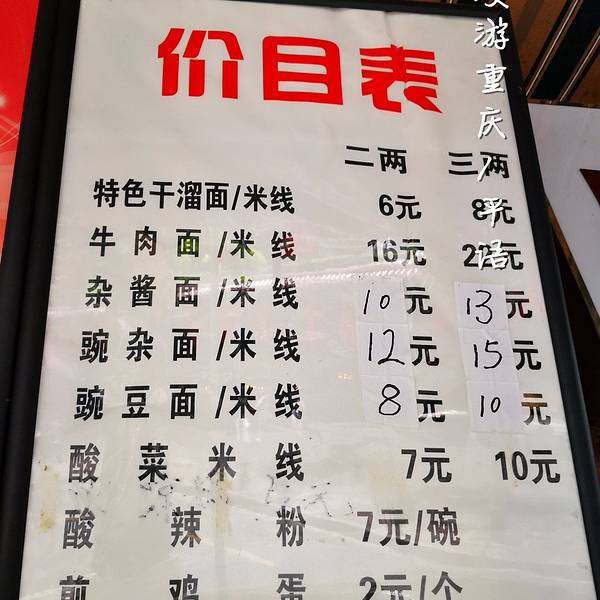 价目表
二两 三两
特色干溜面/米线 6元 8元
牛肉面/米线 16元 2元
杂酱面/米线 10元 13元
豌杂面/米线 12元 15元
豌豆面/米线 8元 10元
酸菜米线 7元 10元
酸辣粉 7元/碗
煎鸡蛋 2元/个
游重庆/平语